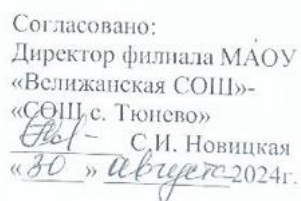 Согласовано:
Директор филиала МАОУ
«Велижанская СОШ»-
«СОШ с. Тюнево»
С.И. Новицкая
«30» августа 2024г.